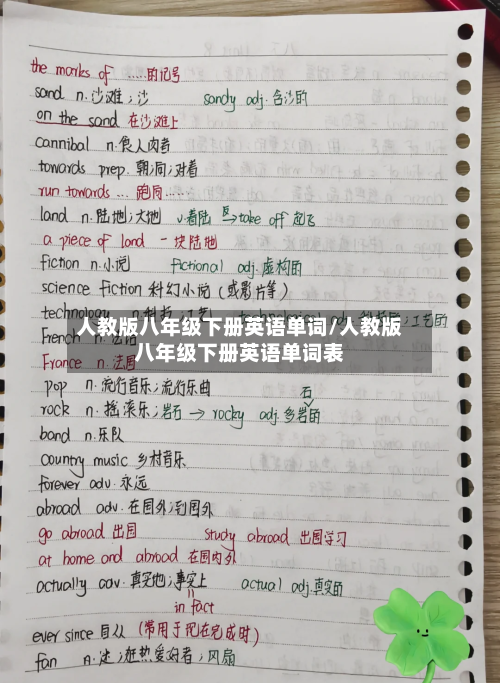 the marks of ……的记号
sand n.沙滩;沙 sandy adj.含沙的
on the sand 在沙滩上
cannibal n.食人肉者
towards prep.朝;向;对着
run towards … 跑向……
land n.陆地;大地 v.着陆 反→take off 起飞
a piece of land 一块陆地
fiction n.小说 fictional adj.虚构的
science fiction 科幻小说(或影片等)
technology n.科技;工艺 工艺的
人教版八年级下册英语单词/人教版
French n.法语
八年级下册英语单词表
France n.法国
pop n.流行音乐;流行乐曲
rock n.摇滚乐;岩石 → rocky adj.多岩石的
band n.乐队
country music 乡村音乐
forever adv.永远
abroad adv.在国外;到国外
go abroad 出国 study abroad 出国学习
at home and abroad 在国内外
actually adv.真实地;事实上 actual adj.真实的
in fact
ever since 自从 (常用于现在完成时)
fan n.迷;狂热爱好者;风扇